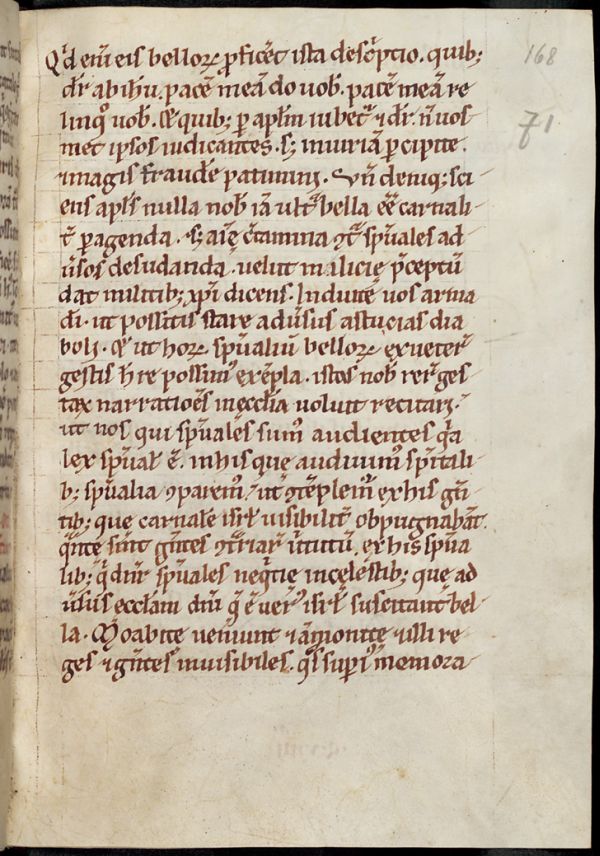 Qd̄ eni᷑ eis belloꝝ ꝓficēt ista desc̄ptio. quib;
dr̄ ab ihū. pacē meā do uob̄. pacē meā re
linq̊ uob̄. Et quib; ꝑ apl̄m iubet᷑ ⁊ dr̄. n̄ uos
met ipsos uindicantes. s; iniuriā ꝑcipite.
⁊ magis fraudē patimini. Vn̄ deniq; sci
ens apl̄s nulla nob̄ iā ult᷑ bella eē carnali
t᷑ ꝑagenda. s; aīę c̄tamina ꝯt᷑ sp̄uales ad
ūsos desudanda. uelut militię p̄ceptū
dat militib; xp̄i dicens. Induite uos arma
dī. ut possitis stare adūsus astucias dia
boli. Et ut hoꝝ sp̄ualiū belloꝝ ex ueteꝝ
gestis h̄re possim᷒ exēpla. istas nob̄ reꝝ ges
taꝝ narrationes in ecclīa uoluit recitari.
ut nos qui sp̄uales sum᷒ audientes q̄a
lex sp̄ual̄ ē. in his que audiuim᷒ sp̄itali
b; sp̄ualia ꝯparem᷒. ut ꝯtēplem᷒ ex his gn̄
tib; que carnale isrl̄ uisibilit᷑ obpugnabāt.
q̄nte sint gn̄tes ꝯt᷑riaꝝ u᷑tutū. ex his sp̄ua
lib; q̄ dn̄r sp̄uales neq̄tię in cęlestib; que ad
ūsus eccl̄am dn̄i q̄ ē ueꝝ isrl̄ suscitant bel
la. Moabite ueniunt ⁊ amonite ⁊ illi re
ges ⁊ gn̄tes inuisibiles. q̊s sup̄i᷒ memora
168
71